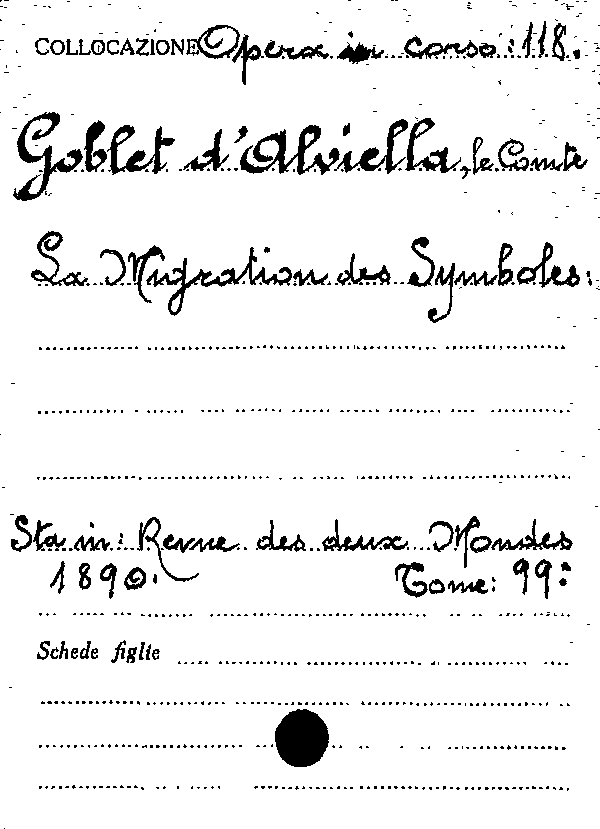 COLLOCAZIONE Opera in corso: 118.
Goblet d'Alviella, le Comte
La Migration des Symboles:
Sta in: Revue des deux Mondes
1890. Tome: 99:
Schede figlie